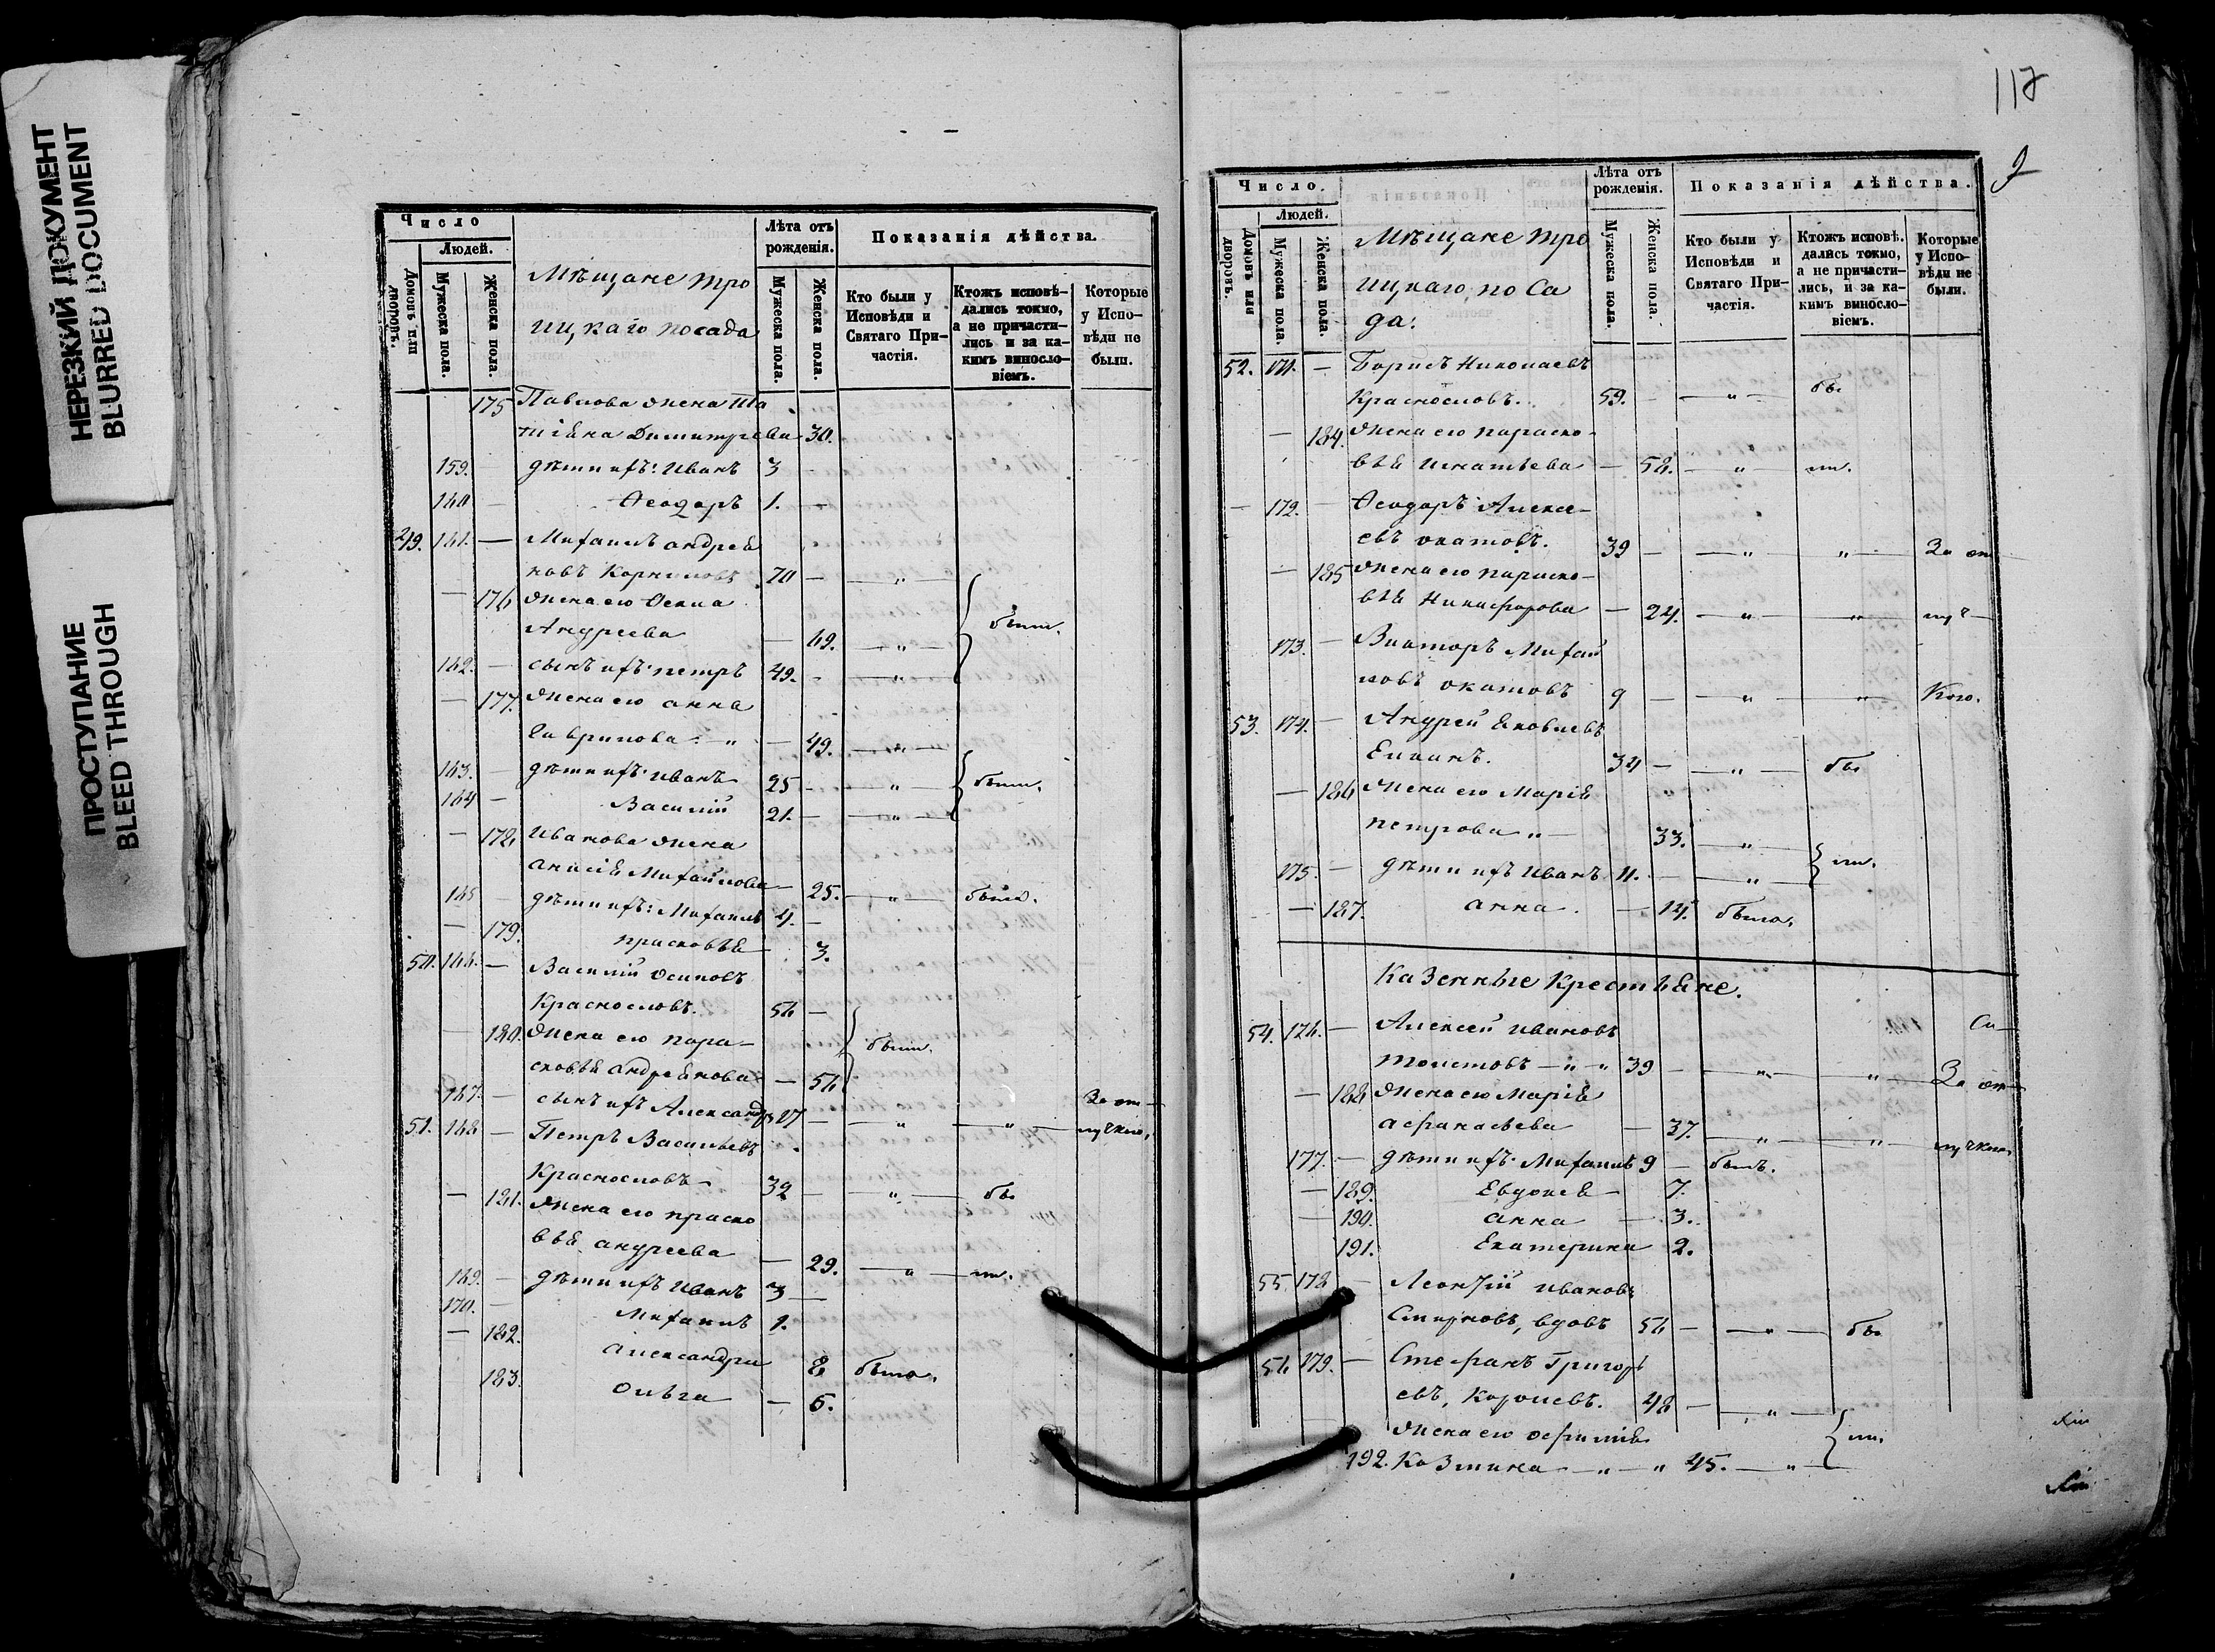 НЕРЕЗКИЙ ДОКУМЕНТ
BLURRED DOCUMENT
ПРОСТУПАНИЕ
BLEED THROUGH
Число
Людей.
Домовъ или дворовъ.
Мужеска пола.
Женска пола.
Мѣщане Тро
ицкаго посада
Лѣта отъ рожденія.
Мужеска пола.
Женска пола.
Показанія дѣйства.
Кто были у Исповѣди и Святаго Причастія.
Ктожъ исповѣдались токмо, а не причастились и за какимъ винословіемъ.
Которые у Исповѣди не были.
175 Павлова жена Та
тіяна Димитрева 30.
159. — дѣти ихъ: Иванъ 3 —
160 — Ѳеодоръ 1. —
49. 161. — Михаилъ андрея
новъ Корниловъ 70 — — „ —
— 176 жена его Ѳекла
Андреева — 69. — „ — были.
162. — сынъ ихъ петръ 49. — — „ —
— 177. жена его анна
Гаврилова „ — 49. — „ —
163. — дѣти ихъ: иванъ 25 — — „ — были.
164 — Василій 21. — — „ —
— 178. иванова жена
анисія Михайлова — 25. — „ — была.
165 — дѣти ихъ: Михаилъ 4. —
— 179. прасковья 3.
50. 166. — Василій осиповъ
Краснословъ. 56 —
— 180. жена его пара-
сковья андреянова — 56 были.
167. — сынъ ихъ Александръ 17 — — „ — — „ — За от-
51. 168 — Петръ Васильевъ лучкою,
Краснословъ — 32 — — „ — бы
— 181. жена его праско
вья андреева — 29. — „ — ли.
169. — дѣти ихъ Иванъ 3 —
170. — Михаилъ 1.
— 182. александра 8 была.
183. ольга — 6.
117
Число.
Людей.
Домовъ или дворовъ.
Мужеска пола.
Женска пола.
Мѣщане Тро
ицкаго по Са
да:
Лѣта отъ рожденія.
Мужеска пола.
Женска пола.
Показанія дѣйства.
Кто были у Исповѣди и Святаго Причастія.
Ктожъ исповѣдались токмо, а не причастились, и за какимъ винословіемъ.
Которые у Исповѣди не были.
52. 171. — Борисъ Николаевъ
Краснословъ. 59. — — „ — бы
— 184. жена его параско-
вья игнатьева — 58. — „ — ли.
— 172. — Ѳеодоръ Алексе-
евъ окатовъ. 39 — — „ — „ — За от
— 185 жена его параско-
вья Никифорова — 24. — „ — — „ — луч-
173. — Викторъ Михай
ловъ окатовъ 9 — — „ — — „ — Кою.
53. 174. — Андрей Яковлевъ
Елкинъ. 34 — — „ — бы
— 186 жена его Марія
петрова „ — 33. — „ —
175. — дѣти ихъ Иванъ 11. — — „ — ли.
— 187. анна. — 14. была,
Казенные Крестьяне.
54. 176. — Алексей ивановъ
Толстовъ — „ — „ 39 — — „ — „ — За от
— 188 жена его Марія
афанасьева — 37. — „ — „ — лучкою
177. — дѣти ихъ: Михаилъ 9 — былъ.
— 189. Евдокея — 7.
— 190. анна — 3.
191. Екатерина 2.
55. 178 — Леонтій иванов
Смирновъ, вдовъ 56 — — „ — бы
56 179. — Стефанъ Григорь
евъ, Королевъ. 48 — — „ —
жена его офимія ли,
192. Козмина — „ — „ 45. — „ —